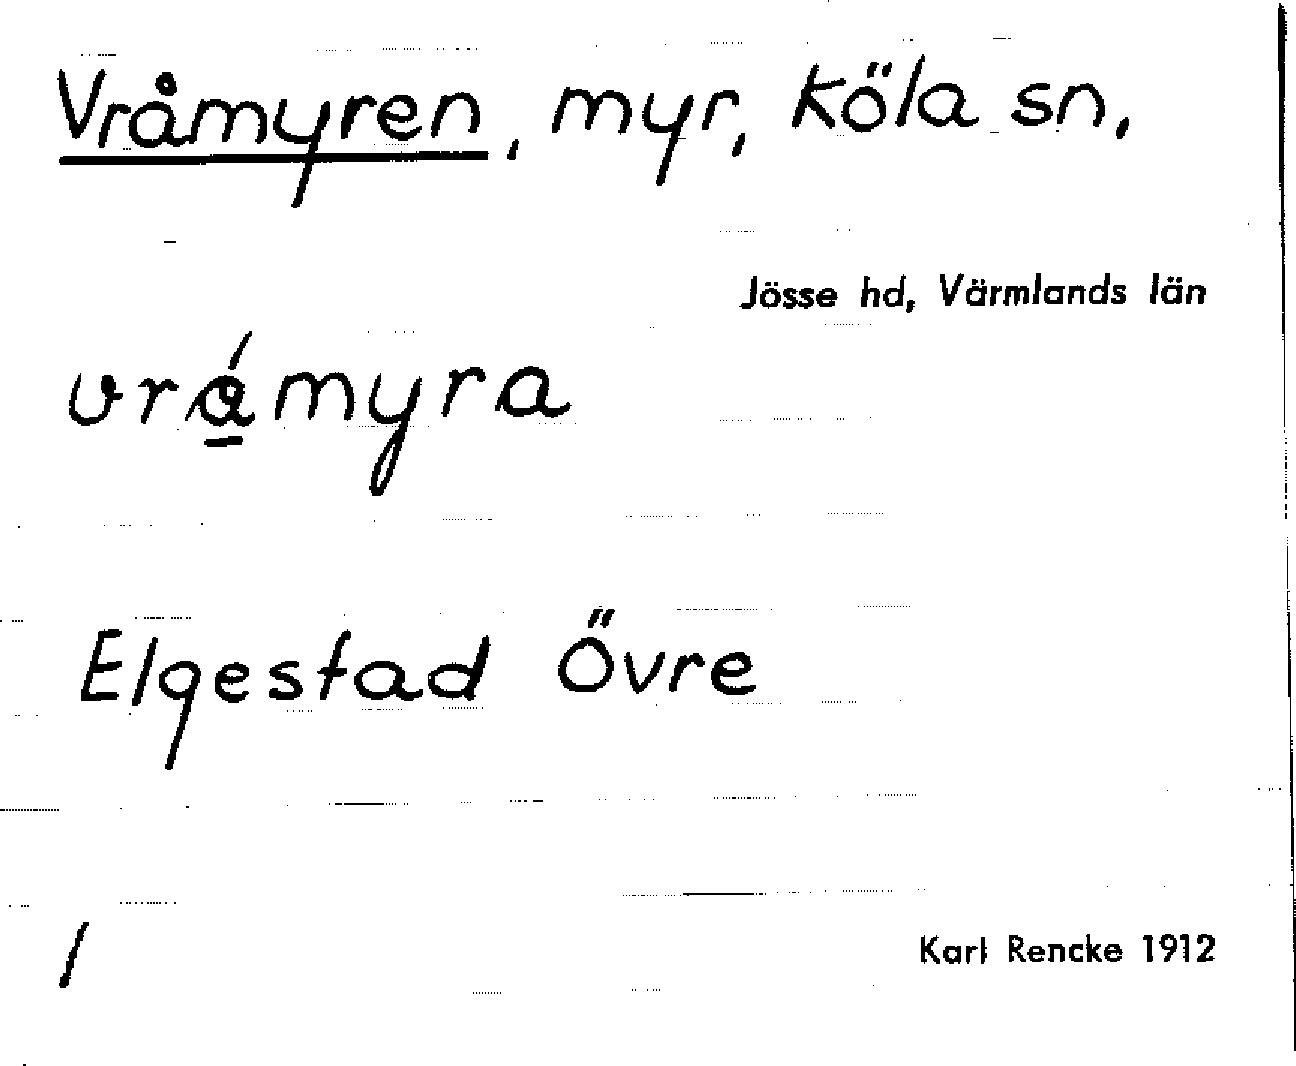 Vråmyren, myr, Köla sn,
Jösse hd, Värmlands län
vrǻmyra
Elgestad Övre
/
Karl Rencke 1912